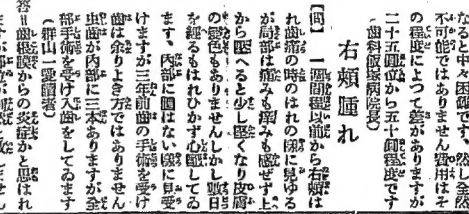 なると中々困難です、然し全然
不可能ではありません費用はそ
の程度によつて差がありますが
二十五圓位から五十圓程度です
(齒科飯塚病院長)
右頰腫れ
【問】一週間程以前から右頰は
れ齒痛の時のはれの樣に見ゆる
が局部は痛みも痒みも感ぜず上
から壓へると少し堅くなり皮膚
の變色もありませんしかし數日
を經るもはれひかず心配してゐ
ます、內部に膿はない樣に見受
けますが三年前齒の手術を受け
齒は余りよき方ではありません
虫齒が內部に三本ありますが全
部手術を受け入齒をしてゐます
(群山一愛讀者)
答=齒根膜からの炎症かと思はれ